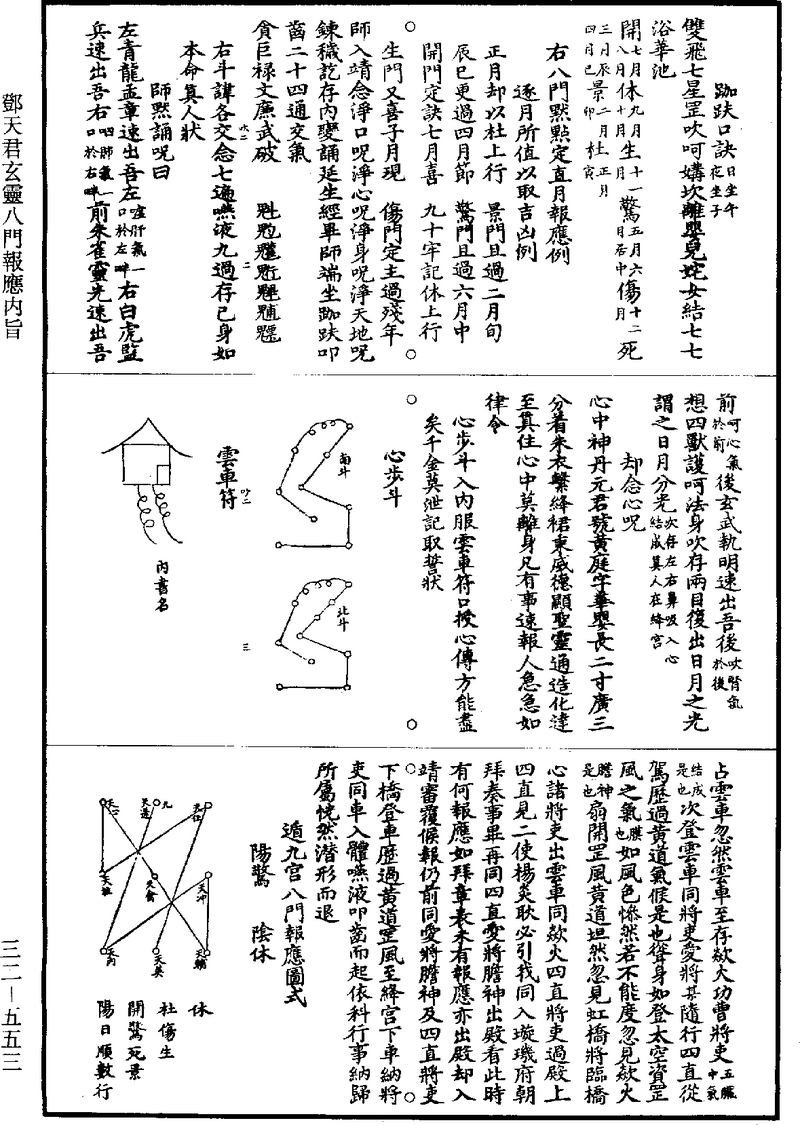 跏趺口訣日坐午夜坐子
雙飛七星罡吹呵媾坎離嬰兒姹女結七七
浴華池
開七月八月休九月十月生十一月驚五月六月居中傷十二月死
三月四月辰巳景二月卯杜正月寅
右八門黙黙定直月報應例
逐月所值以取吉凶例
正月却以杜上行 景門且過二月旬
辰巳更過四月節 驚門且過六月中
開門定訣七月喜 九十牢記休上行
生門又喜子月現 傷門定主過殘年
師入靖念淨口呪淨心呪淨身呪淨天地呪
鍊穢訖存內變誦延生經畢師端坐跏趺叩
齒二十四通交氣
貪巨祿文廉武破 魁䰢䰡魓䰣
右斗諱各交念七遍嚥液九過存已身如
本命真人狀
師黙誦呪曰
左青龍孟章速出吾左嘘肝氣一口於左畔右白虎監
兵速出吾右呬肺氣一口於右畔前朱雀靈光速出吾
前呵心氣於前後玄武執明速出吾後吹腎氣於後
想四獸護呵法身吹存兩目復出日月之光
謂之日月分光次存左右鼻吸入心結成真人在絳宮
却念心呪
心中神丹元君號黃庭字華嬰長二寸廣三
分着朱衣繫絳裙東威德顯聖靈通造化達
至真住心中莫離身凡有事速報人急急如
律令
心步斗入內服雲車符口授心傳方能盡
矣千金莫泄記取誓狀
心步斗
南斗
北斗
雲車符
內書名
占雲車忽然雲車至存歘火功曹將吏五臟中氣
結成是也次登雲車同將吏愛將其隨行四直從
駕歷過黃道氣候是也聳身如登太空資罡
風之氣膜也如風色慘然若不能度忽見歘火
膽神是也扇開罡風黃道坦然忽見虹橋將臨橋
心諸將吏出雲車同歘火四直將吏過殿上
四直見二使楊炎耿必引我同入璇璣府朝
拜奏事畢再同四直愛將膽神出殿看此時
有何報應如拜章表未有報應亦出殿却入
靖審覆候報仍前同愛將膽神及四直將吏
下橋登車歷過黃道罡風至絳宮下車納將
吏同車入體嚥液叩齒而起依科行事納歸
所屬恍然潜形而退
遁九宮八門報應圖式
陽驚 陰休
天心
天蓬
九
天任
天柱
天禽
天冲
天芮
天英
天輔
休
杜傷生
開驚死景
陽日順數行
鄧天君玄靈八門報應內旨
三二—五五三